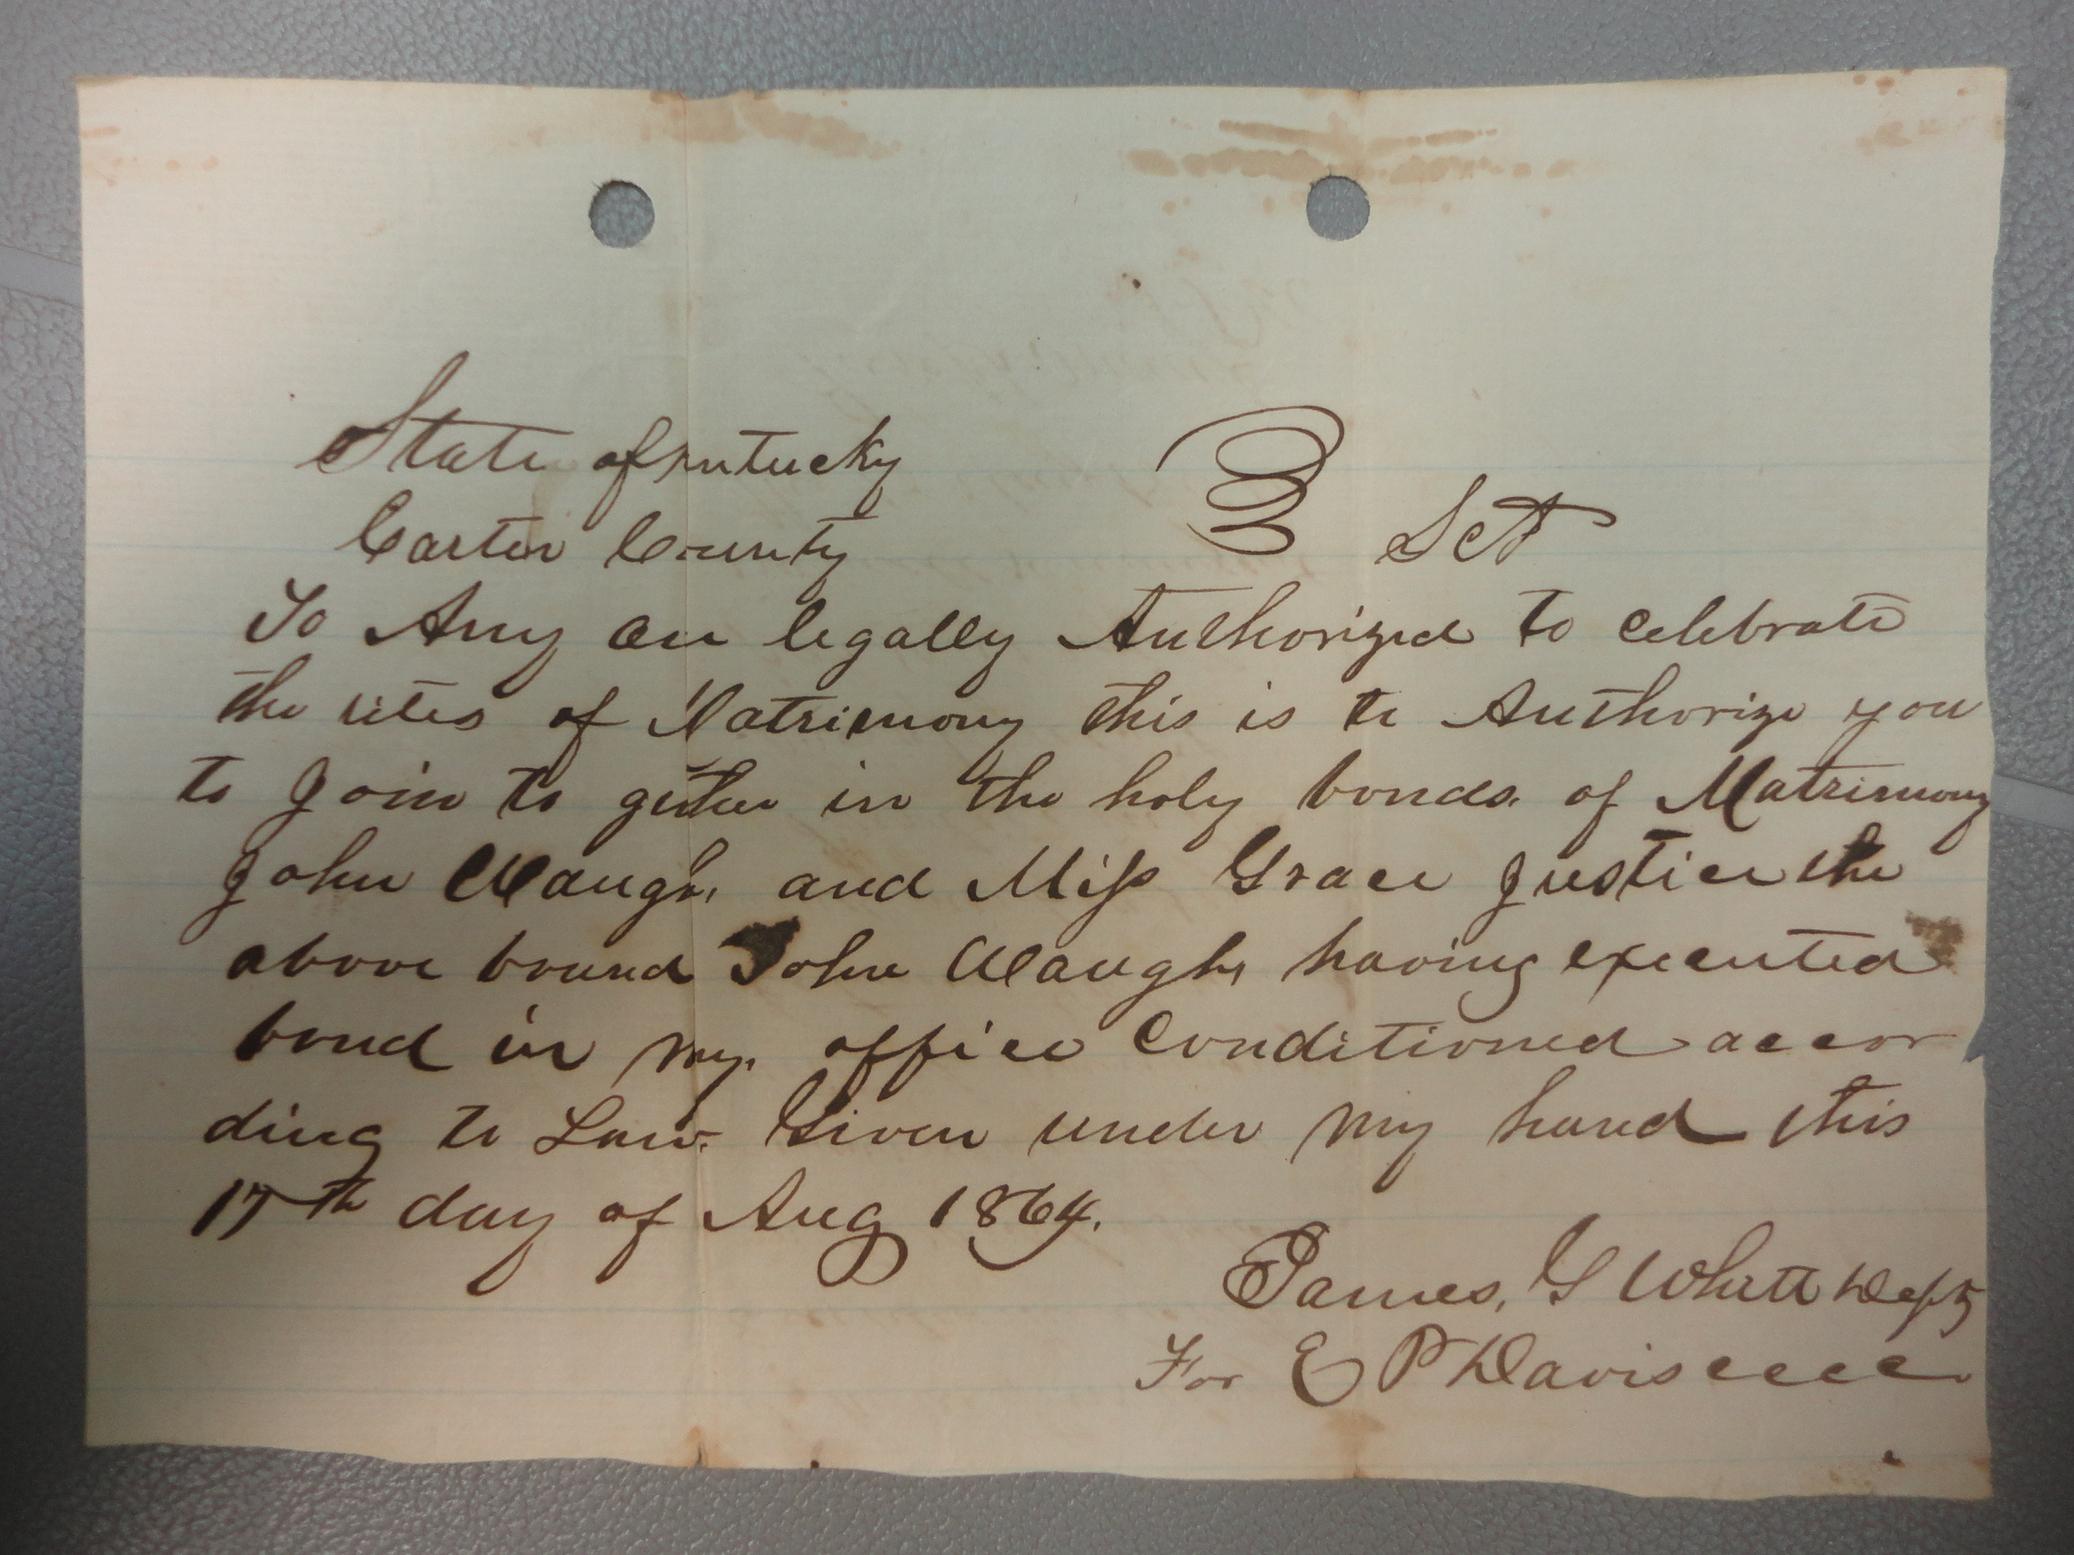 State of kntucky
Carter County Sct
To Any on legally Authorized to celebrate
the rites of Matrimony this is to Authorize you
to join to gether in the holy bonds of Matrimony
John Waugh and Miss Grace Justice the
above bound John Waugh having executed
bond in my office Conditioned accor
ding to Law. Given under my hand this
17th day of Aug 1864.
James, G Whitt Depty
For E P Davis cccc